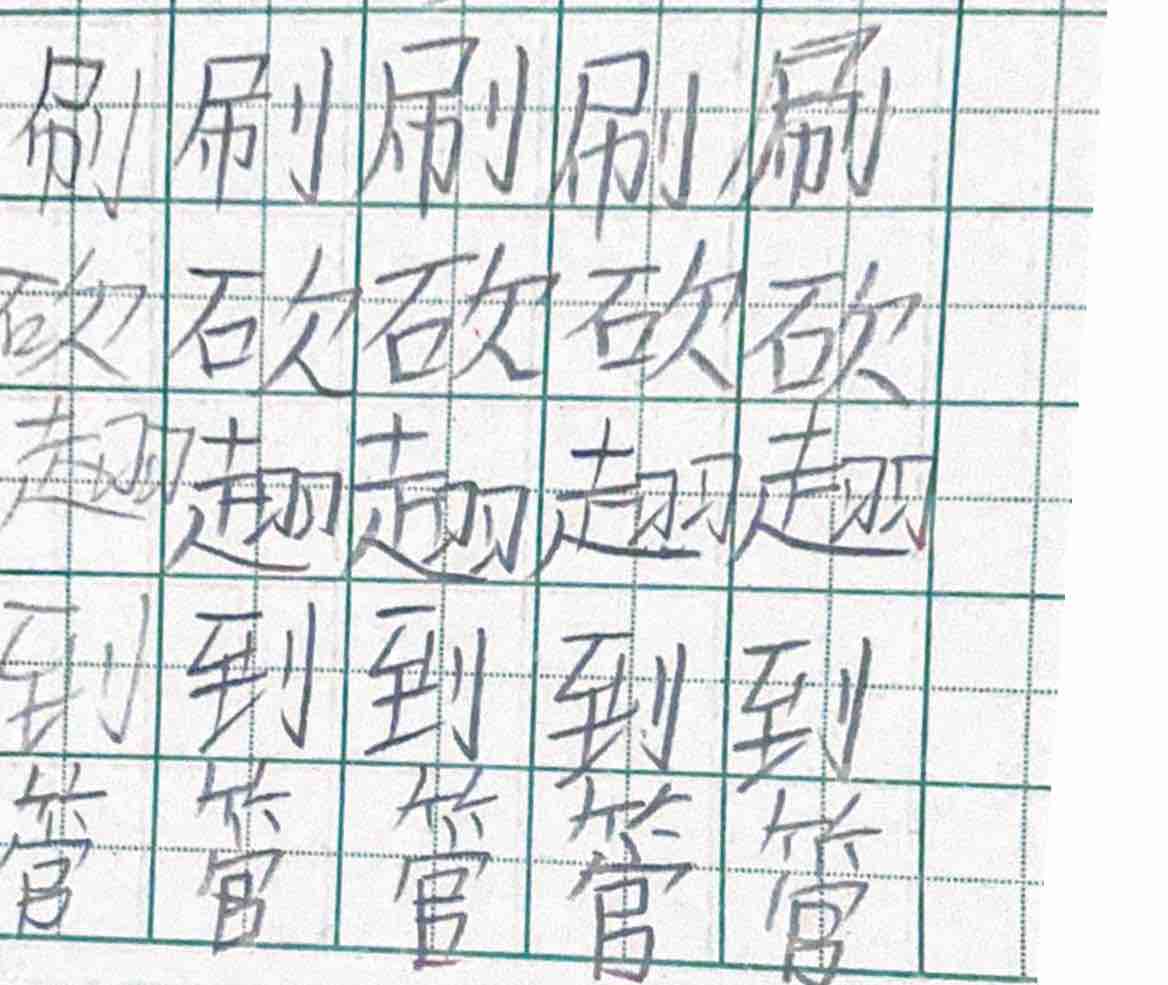 刷刷刷刷刷
砍砍砍砍砍
趐趐趐趐趐
到到到到到
管管管管管